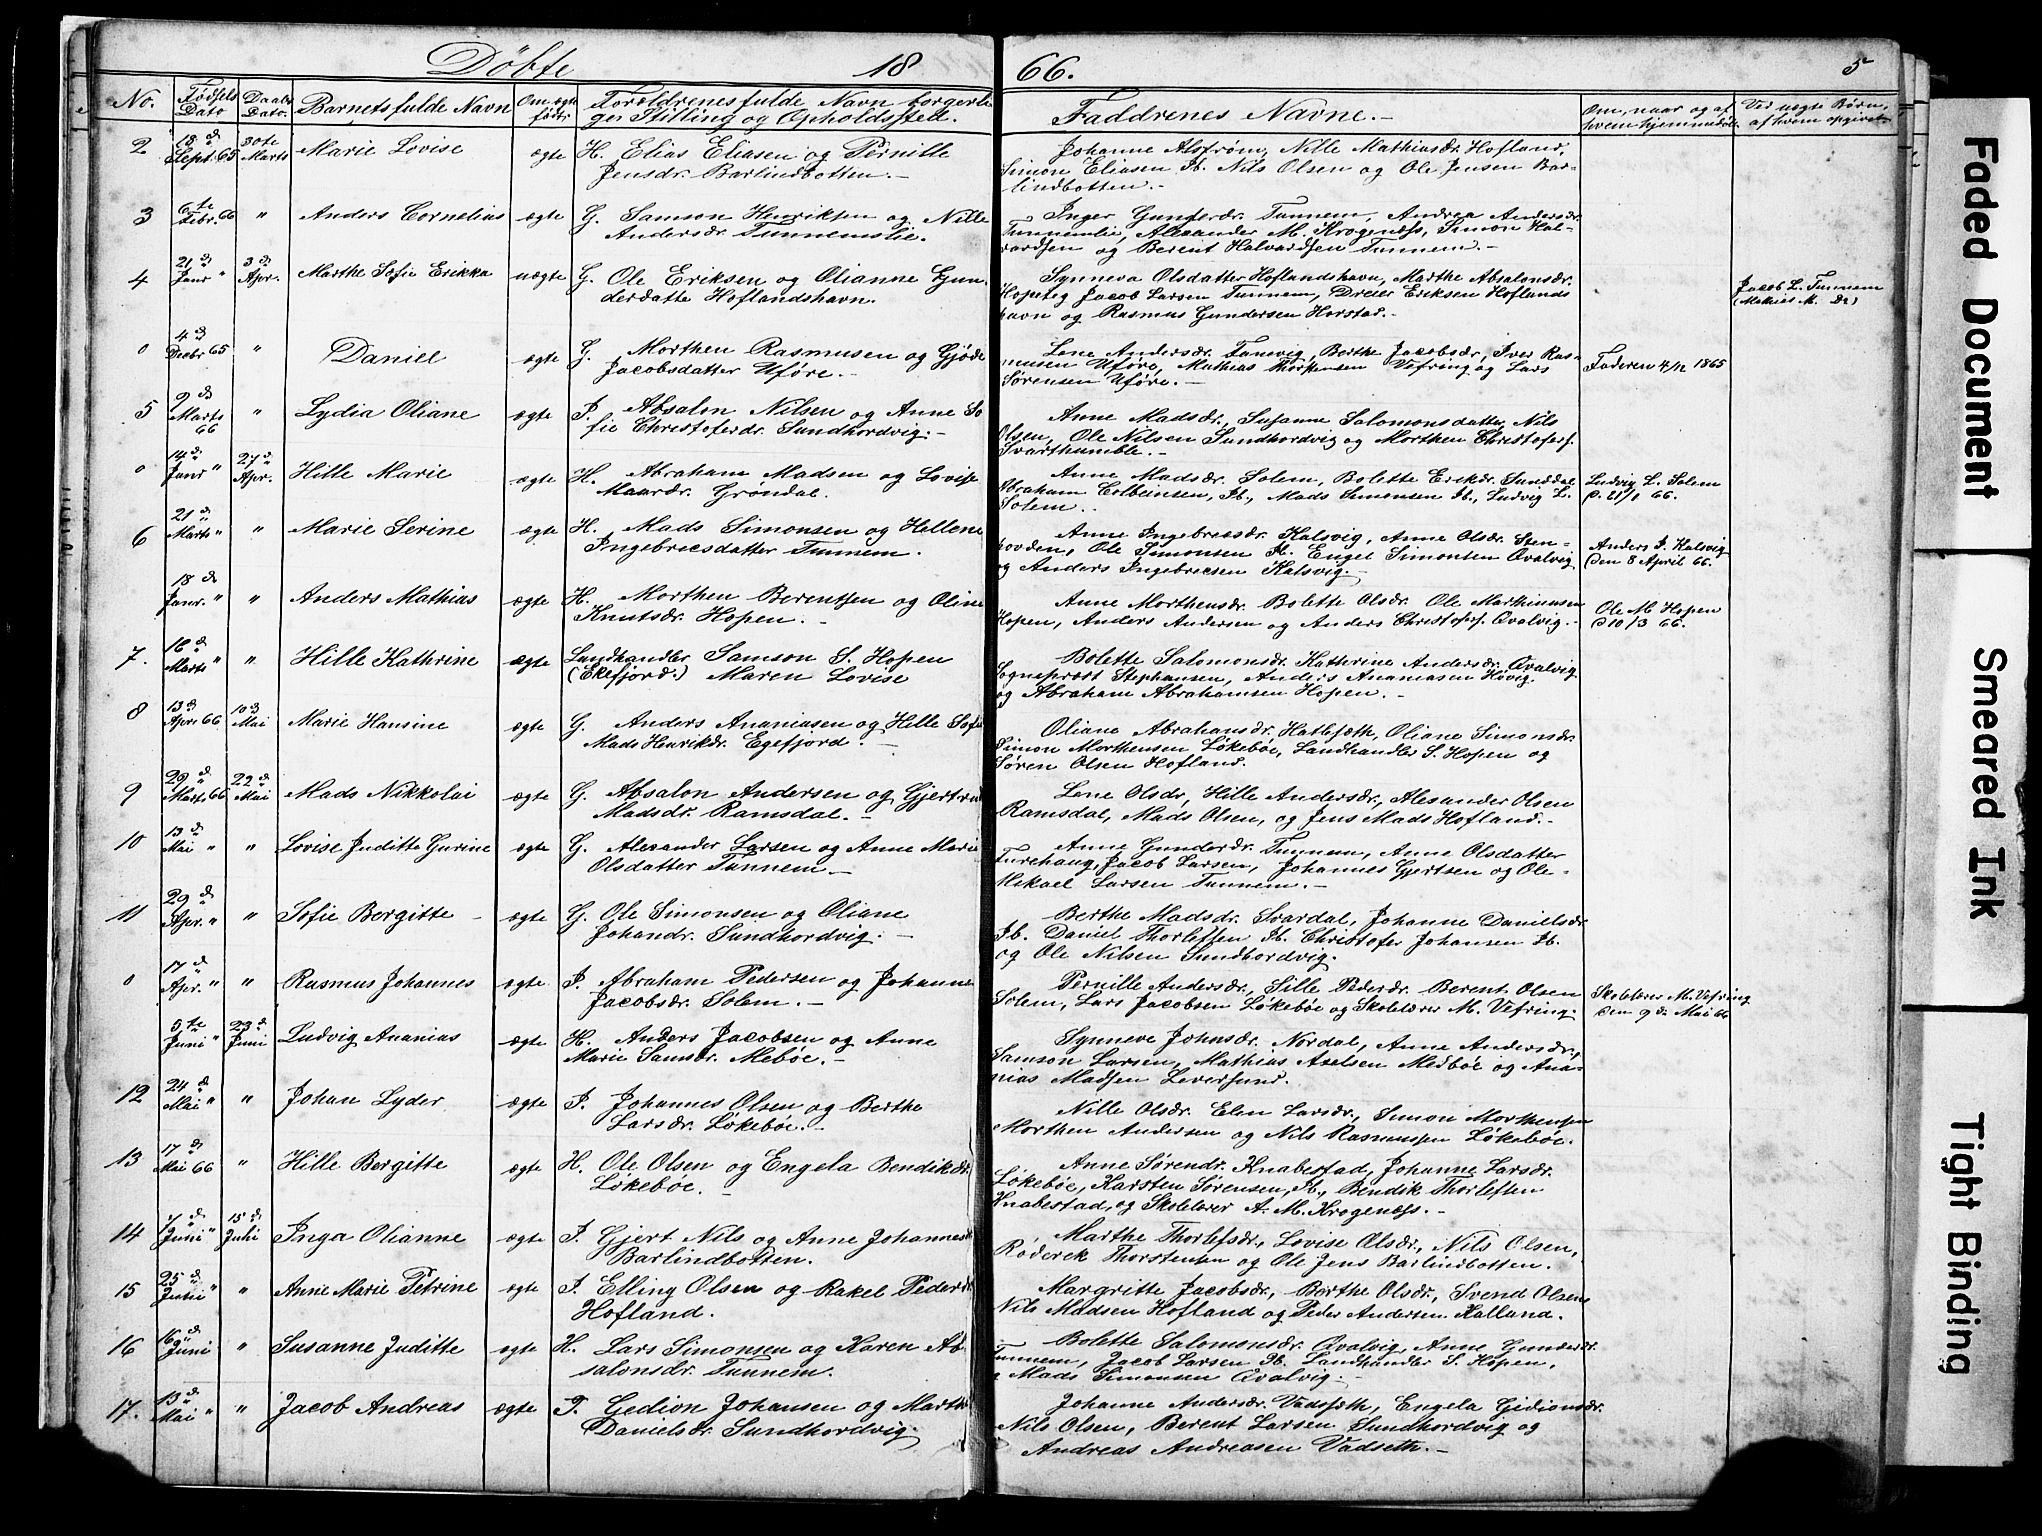 Døbte 18 66. 5
No. Fødsels Dato Daabs Dato. Barnets fulde Navn Om ægte født Forældrenes fulde Navn borgerli- Faddrenes Navne.- Om, naar og af Ved uægte Børn,
ger Stilling og Opholdssted. hvem hjemmedøbt af hvem opgivet
2 18 d Sept. 65 30te Marts Marie Lovise ægte H. Elias Eliasen og Pernille
Jensdr. Barlindbotten.-
Johanne Alstrøm, Nille Mathiasdr. Hofland,
Simon Eliasen Ib. Nils Olsen og Ole Jensen Bar-
lindbotten.-
3 6te Febr. 66 " Anders Cornelius ægte G. Samson Henriksen og Nille
Andersdr. Tunnemslie.
Inger Gunderdr. Tunnem, Andrea Andersdr.
Tunnemlie, Alexander M. Krogenæss, Simon Hal-
vardsen og Berent Halvardsen Tunnem.-
4 21 d Janr " 3 d Apr. Marthe Sofie Erikka uægte G. Ole Eriksen og Olianne Gun-
derdatte Hoflandshavn.
Synneva Olsdatter Hoflandshavn, Marthe Absalonsdr.
Hopen, Jacob Larsen Tunnem, Dreier Eriksen Hoflands
havn og Rasmus Gundersen Horstad.-
Jacob L. Tunnem
(Mathias M. Do)
0 4 d Decbr 65 " Daniel ægte G. Morthen Rasmusen og Gjøde
Jacobsdatter Uføre.-
Lene Andersdr. Fanevig, Berthe Jacobsdr, Iver Ras-
musen Uføre, Mathias Thorstensen Vefring og Lars
Sørensen Uføre.-
Faderen 4/12 1865
5 9 d Marts 66 " Lydia Oliane ægte I. Absalon Nilsen og Anne So
fie Christoferdr. Sundhordvig.-
Anne Madsdr., Susanne Salomonsdatter, Nils
Olsen, Ole Nilsen Sundhordvig og Morthen Christofers.
Svarthumble.-
0 14 d Janr " 27 d Apr. Hille Marie ægte H. Abraham Madsen og Lovise
Maardr. Grøndal.
Anne Madsdr. Solem, Bolette Erikdr. Sunddal
Abraham Colbeinsen, Ib., Mads Simonsen Ib., Ludvig L.
Solem.
Ludvig L. Solem
d. 21/1 66.
6 21 d Marts " " Marie Serine ægte H. Mads Simonsen og Hellene
Ingebregsdatter Tunnem.
Anne Ingebregsdr. Kalsvig, Anne Olsdr. Sten-
hovden, Ole Simonsen Ib. Engel Simonsen Qvalvig
og Anders Ingebregsen Kalsvig.-
Anders I. Kalsvig
den 8 April 66.
18 d Janr. " " Anders Mathias ægte H. Morthen Berentsen og Oline
Knutsdr. Hopen.-
Anne Morthensdr. Bolette Olsdr. Ole Marthinusen
Hopen, Anders Andersen og Anders Christofers. Qvalvig.-
Ole M. Hopen
d 10/3 66.
7. 16 d Marts " " Hille Kathrine ægte Landhandler Samson S. Hopen
(Ekefjord.) Maren Lovise
Bolette Salomonsdr. Kathrine Andersdr. Qvalvig
Sognepræst Stephansen, Anders Ananiasen Høvig
og Abraham Abrahamsen Hopen.-
8 13 d Apr. 66 10 d Mai Marie Hansine ægte G. Anders Ananiasen og Helle Sofie
Mads Henrikdr. Egefjord.-
Oliane Abrahamsdr. Hatlesæth, Oliane Simonsdr.
Simon Morthensen Løkebøe, Landhandler S. Hopen og
Søren Olsen Hofland.
9 29 d Marts 66 22 d Mai Mads Nikkolai ægte G. Absalon Andersen og Gjertrud
Madsdr. Ramsdal.-
Lene Olsdr, Hille Andersdr., Alexander Olsen
Ramsdal, Mads Olsen, og Jens Mads Hofland.-
10 13 d Mai " " Lovise Juditta Gurine ægte G. Alexander Larsen og Anne Marie
Olsdatter Tunnem.-
Anne Gunderdr. Tunnem, Anne Olsdatter
Turehaug, Jacob Larsen, Johannes Gjertsen og Ole-
Mikael Larsen Tunnem.-
11 29 d Apr. " " Sofie Bergitte - ægte G. Ole Simonsen og Oliane
Johandr. Sundhordvig.-
Berthe Madsdr. Svardal, Johanne Danielsdr
Ib. Daniel Thorlefsen Ib. Christofer Johansen Ib.
og Ole Nilsen Sundhordvig.
0 17 d Apr. " " Rasmus Johannes ægte I. Abraham Pedersen og Johanne
Jacobsdr. Solem.-
Pernille Andersdr., Sille Pederdr. Berent Olsen
Solem, Lars Jacobsen Løkebøe og Skolelærer M. Vefring.
Skolelærer M. Vefring
den 9 d. Mai 66
5te Juni " 23 d Juni Ludvig Ananias ægte H. Anders Jacobsen og Anne
Marie Samsdr. Mebøe.-
Synneve Johnsdr. Nordal, Anne Andersdr.,
Samson Larsen, Mathias Axelsen Medbøe og Ana-
nias Madsen Leversund.
12 24 d Mai " " Johan Lyder ægte I. Johannes Olsen og Berthe
Larsdr. Løkebøe.-
Nille Olsdr. Elen Larsdr., Simon Morthensen
Morthen Andersen og Nils Rasmussen Løkebøe.
13 17 d Mai 66 " Hille Bergitte ægte H. Ole Olsen og Engela Bendikdr.
Løkebøe.-
Anne Sørendr. Knabestad, Johanne Larsdr.
Løkebøe, Karsten Sørensen, Ib., Bendik Thorlefsen
Knabestad, og Skolelærer A. M. Krogenæss.-
14 7 d Juni " 15 d Juli Inga Olianne ægte I. Gjert Nils og Anne Johannes
Barlindbotten.
Marthe Thorlefsdr., Lovise Olsdr., Nils Olsen,
Roderek Thorstensen og Ole Jens Barlindbotten.
15 25 d Juni " " Anne Marie Petrine ægte I. Elling Olsen og Rakel Pederdr
Hofland.
Margritte Jacobsdr., Berthe Olsdr., Svend Olsen
Nils Madsen Hofland og Peder Andersen Kalland.
16 16 d Juni " Susanne Juditte ægte H. Lars Simonsen og Karen Ab-
salonsdr. Tunnem.
Bolette Salomonsdr. Qvalvig, Anne Gunderdr.
Tunnem, Jacob Larsen Ib. Landhandler S. Hopen,
Mads Simonsen Qvalvig.-
17. 13 d Mai " " Jacob Andreas ægte I. Gedion Johansen og Marthe
Danielsdr. Sundhordvig.
Johanne Andersdr. Vadsæth, Engela Gidionsdr.
Nils Olsen, Berent Larsen Sundhordvig og
Andreas Andreasen Vadseth.-
Faded Document
Smeared Ink
Tight Binding